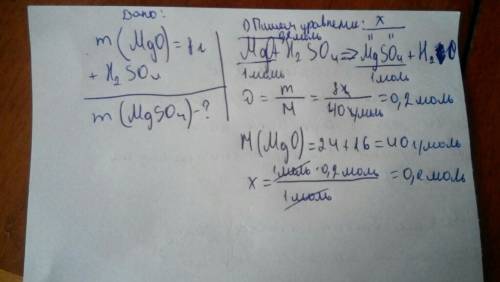 Дано:
m(MgO)=8г
+ H₂SO₄
m(MgSO₄)-?
1) Пишем уравнение:
0,2моль x
MgO+H₂SO₄⇒MgSO₄+H₂O
1моль 1моль
ν = m/M = 8г/40г/моль = 0,2моль
M(MgO)=24+16=40г/моль
x = 1моль·0,2моль/1моль = 0,2моль